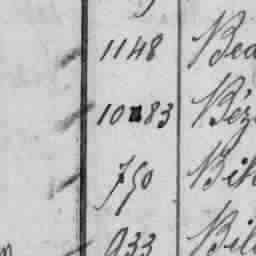 1148 Bea
1083 Béz
750 Bih
933 Bil